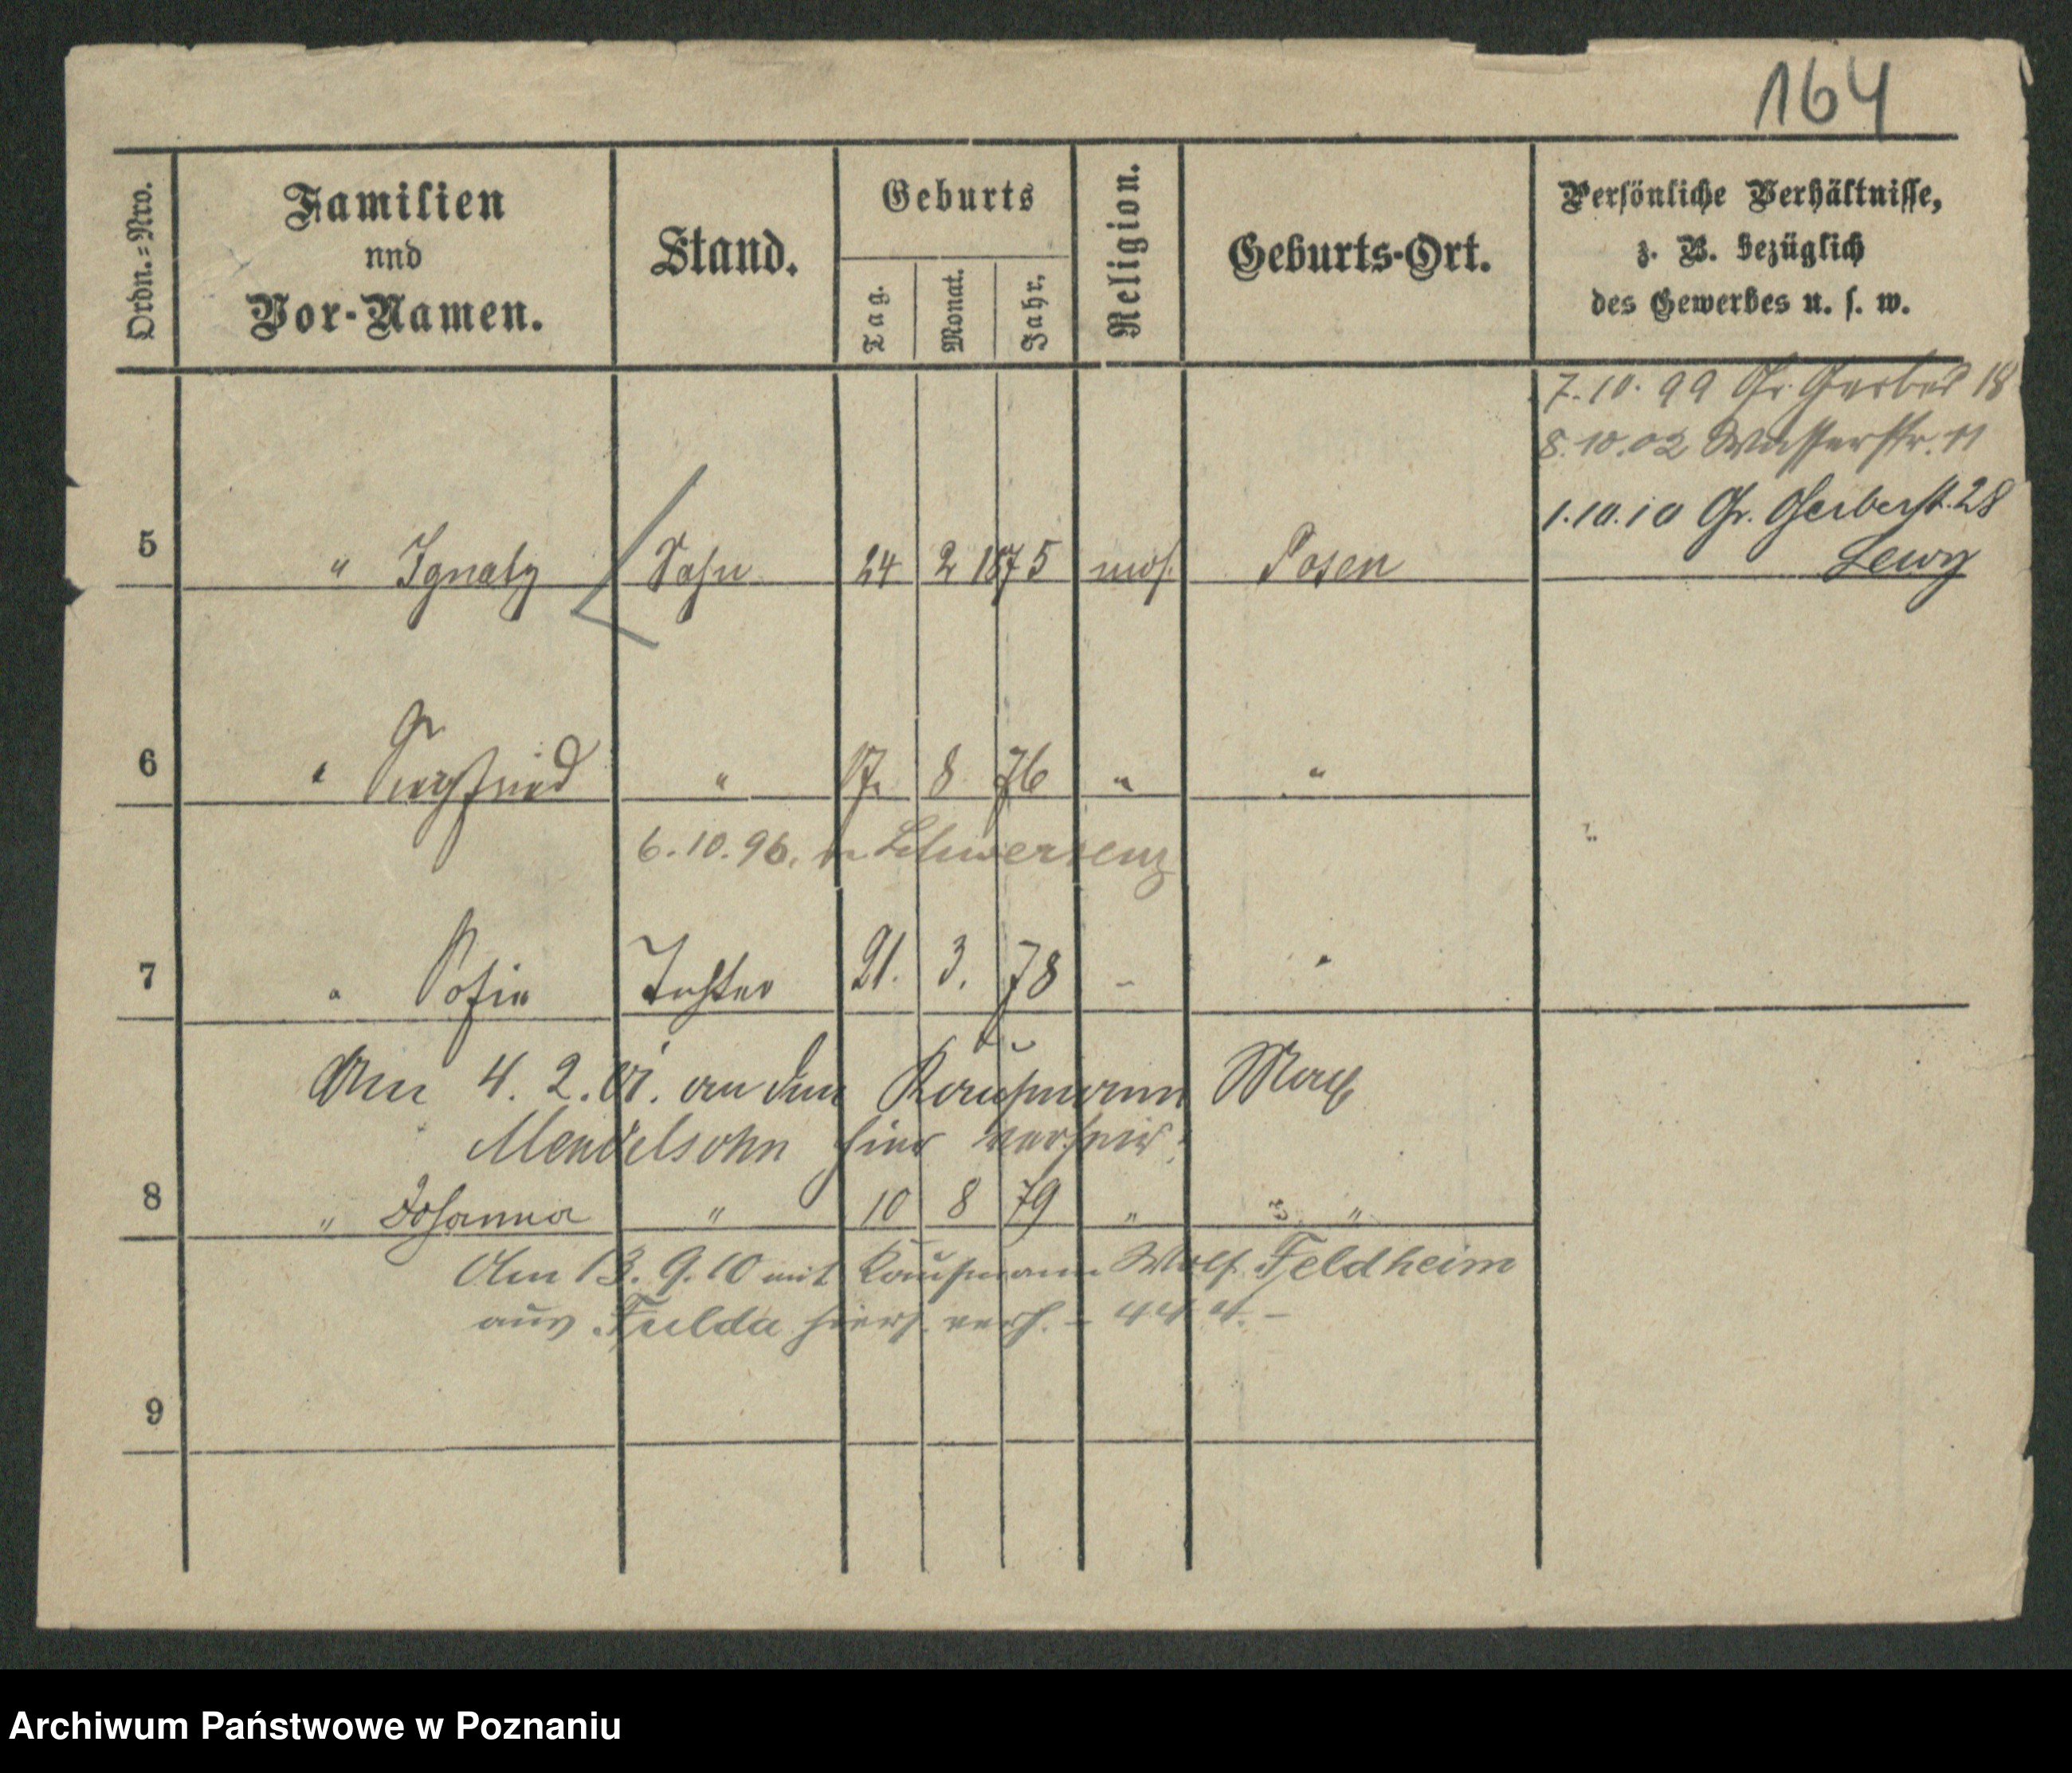 164
Ordn.=Nro.
Familien
nnd
Vor-Namen.
Stand.
Geburts
Tag.
Monat.
Jahr.
Religion.
Geburts-Ort.
Persönliche Verhältnisse,
z. B. bezüglich
des Gewerbes u. s. w.
7.10.99 Gr. Gerber 18
8.10.02 Wasserstr. 11
1.10.10 Gr. Gerberst. 28
Lewy
5 " Ignatz Sohn 24 2 1875 mos. Posen
6 " Siegfried " 17. 8 76 " "
6.10.96. n. Schwersenz
7 " Sofie Tochter 21. 3. 78 " "
Am 4. 2. 01. an den Kaufmann Max
Mendelsohn hier verheir.
8 " Johanna " 10 8 79 " "
Am 13. 9. 10 mit Kaufmann Wolf Feldheim
aus Fulda hiers. verh. -
9
Archiwum Państwowe w Poznaniu